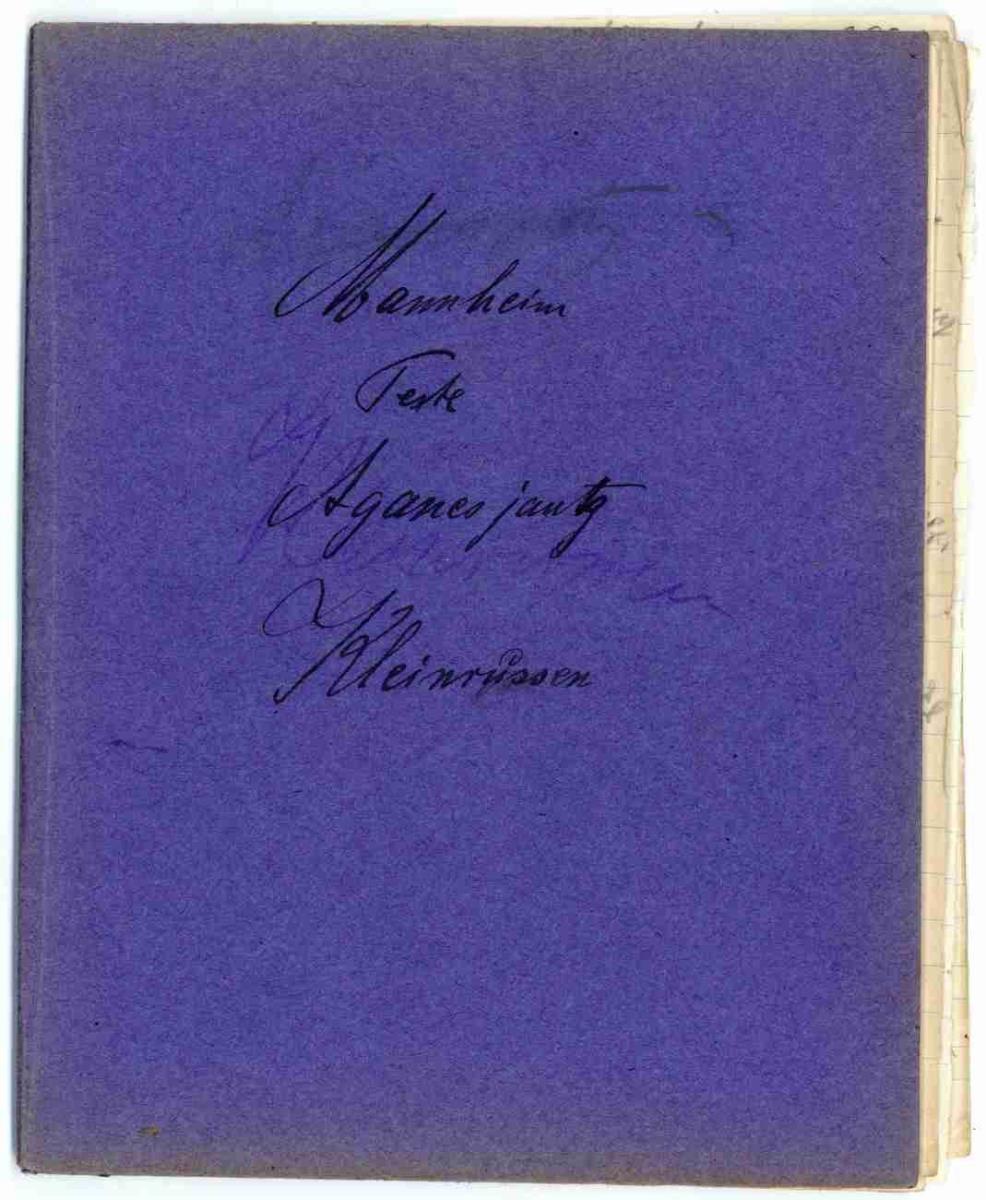 Mannheim
Texte
Aganesjantz
Kleinrussen